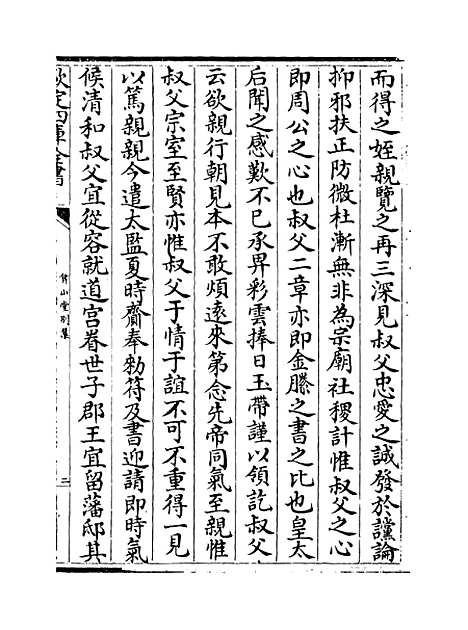 而得之姪親覽之再三深見叔父忠愛之誠發於讜論
抑邪扶正防微杜漸無非為宗廟社稷計惟叔父之心
即周公之心也叔父二章亦即金縢之書之比也皇太
后聞之感歎不已承畀彩雲捧日玉帶謹以領訖叔父
云欲親行朝見本不敢煩遠來第念先帝同氣至親惟
叔父宗室至賢亦惟叔父于情于誼不可不重得一見
以篤親親今遣太監夏時齎奉勅符及書迎請即時氣
候清和叔父宜從容就道宫眷世子郡王宜留藩邸其
欽定四庫全書
弇山堂别集
二